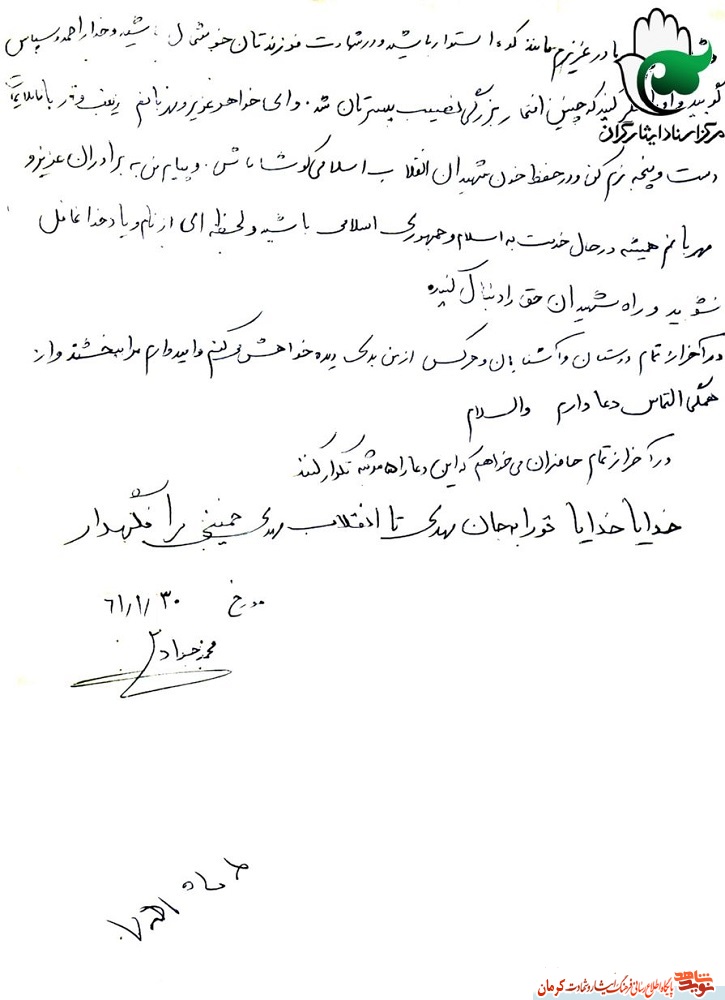 مادر عزیزم مانند کوه استوار باشید و در شهادت فرزندتان خوشحال باشید و خدا را حمد و سپاس
گوئید و او را شکر کنید که چنین افتخار بزرگی نصیب پسرتان شد. و ای خواهر عزیز و مهربانم زینب وار با ناملایمات
دست و پنجه نرم کن و در حفظ خون شهیدان انقلاب اسلامی کوشا باش. و پیام من به برادران عزیز و
مهربانم همیشه در حال خدمت به اسلام و جمهوری اسلامی باشید و لحظه ای از نام و یاد خدا غافل
نشوید و راه شهیدان حق را دنبال کنید
در آخر از تمام دوستان و آشنایان و هرکس از من بدی دیده خواهش می کنم و امیدوارم مرا ببخشند و از
همگی التماس دعا دارم والسلام
در آخر از تمام حاضران می خواهم که این دعا را ۵ مرتبه تکرار کنند
خدایا خدایا تو را به جان مهدی تا انقلاب مهدی خمینی را نگهدار
مورخ ۶۱/۱/۳۰
محمد جواد
مرکز اسناد ایثارگران
نوید شاهد
پایگاه اطلاع رسانی فرهنگ ایثار و شهادت کرمان